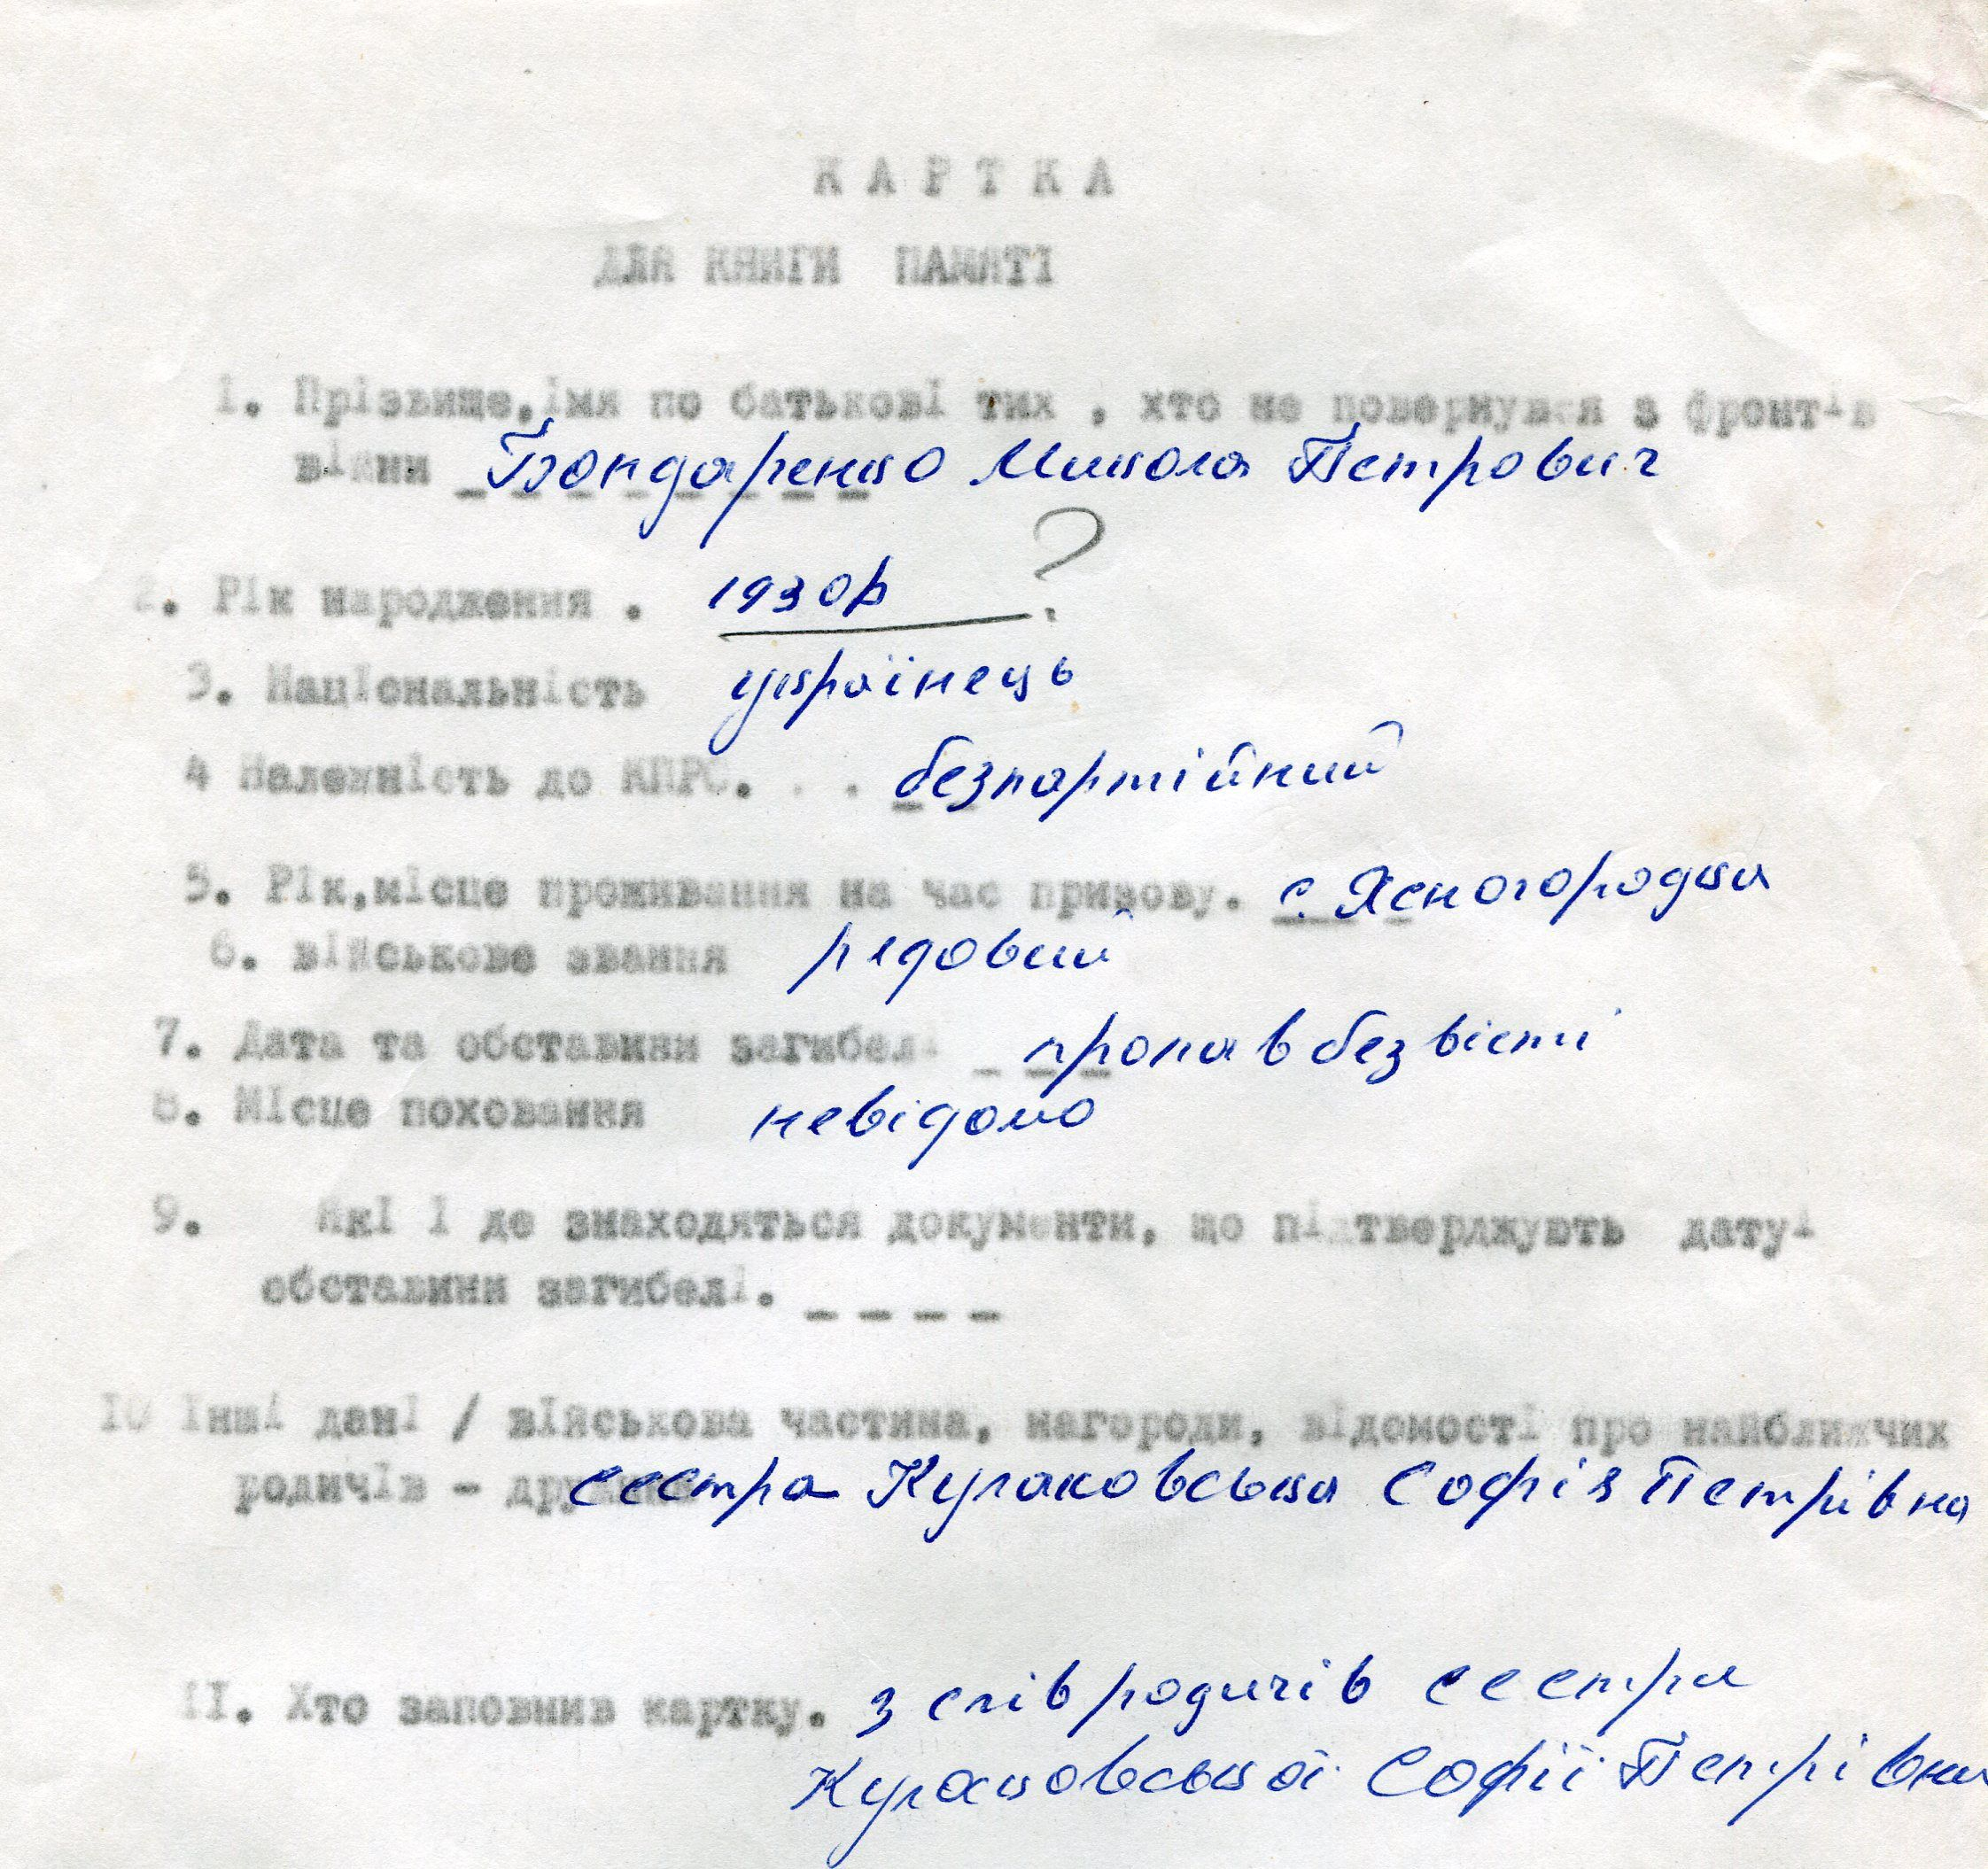 КАРТКА
ДЛЯ КНИГИ ПАМЯТІ
1. Прізвище,імя по батькові тих , хто не повернувся з фронтів
війни Бондаренко Микола Петрович
2. Рік народження . 1930р ?
3. Національність українець
4 Належність до КПРС. . . безпартійний
5. Рік,місце проживання на час призову. с. Ясногородка
6. військове звання рядовий
7. Дата та обставини загибелі _ _ _ пропав безвісті
8. Місце поховання невідомо
9. Які і де знаходяться документи, що підтверджують датуі
обставини загибелі. _ _ _ _
10 Інші дані / військова частина, нагороди, відомості про найближчих
родичів - дружина сестра Кулаковська Софія Петрівна
II. Хто заповнив картку. з слів родичів сестри
Кулаковської Софії Петрівни